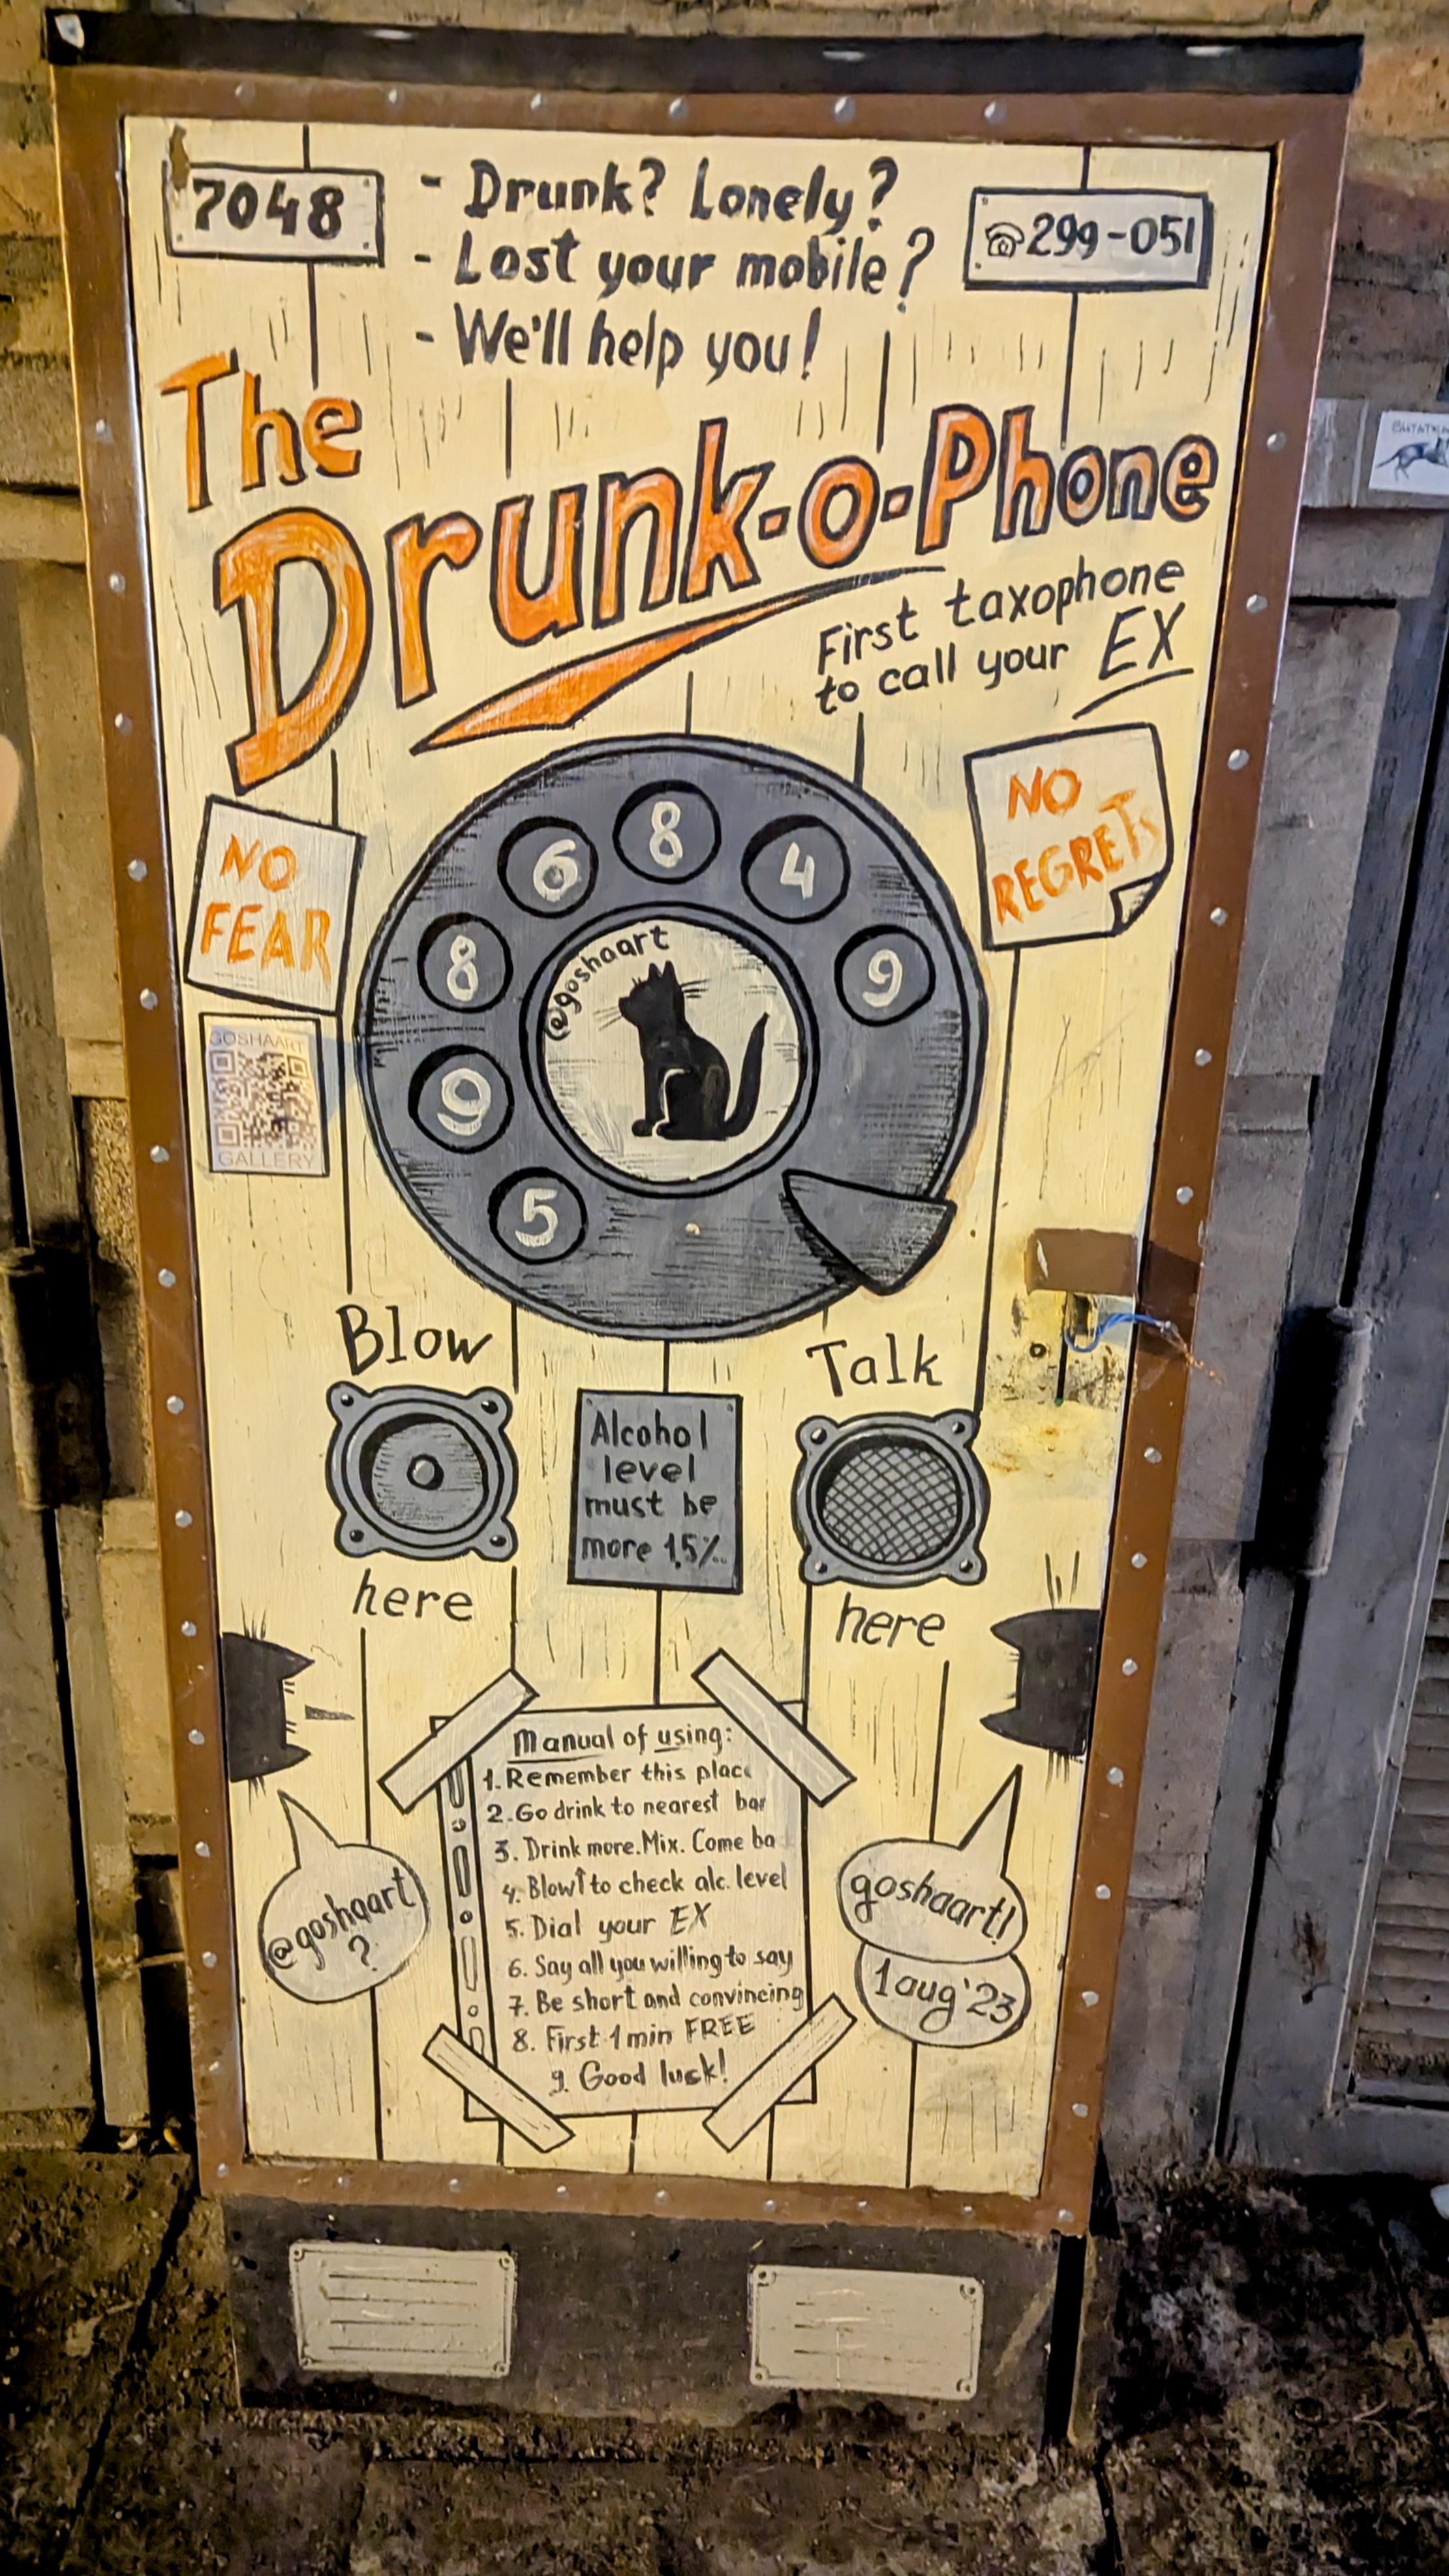 7048
- Drunk? Lonely?
- Lost your mobile?
- We'll help you!
☎299-051
The
Drunk-o-Phone
First taxophone
to call your EX
NO
FEAR
NO
REGRETs
GOSHAART
GALLERY
4
8
6
8
9
9
5
@goshaart
Blow
here
Alcohol
level
must be
more 1,5%.
Talk
here
Manual of using:
1. Remember this place
2. Go drink to nearest bar
3. Drink more. Mix. Come ba
4. Blow↑ to check alc. level
5. Dial your EX
6. Say all you willing to say
7. Be short and convincing
8. First 1 min FREE
9. Good luck!
@goshaart
?
goshaart!
1 aug'23